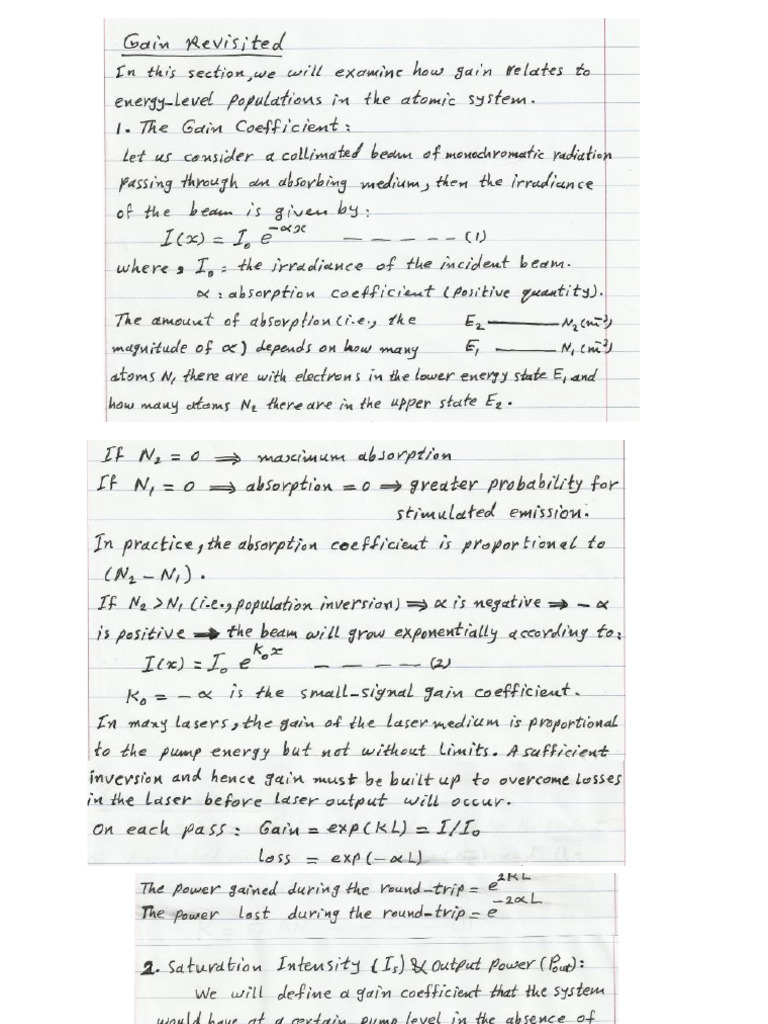 Gain Revisited
In this section, we will examine how gain relates to
energy-level populations in the atomic system.
1. The Gain Coefficient:
Let us consider a collimated beam of monochromatic radiation
passing through an absorbing medium, then the irradiance
of the beam is given by:
I(x) = I₀ e^-αx ------ (1)
where, I₀: the irradiance of the incident beam.
α: absorption coefficient (positive quantity).
The amount of absorption (i.e., the E₂ ——— N₂(m⁻³)
magnitude of α) depends on how many E₁ ——— N₁(m⁻³)
atoms N₁ there are with electrons in the lower energy state E₁ and
how many atoms N₂ there are in the upper state E₂.
If N₂ = 0 ⇒ maximum absorption
If N₁ = 0 ⇒ absorption = 0 ⇒ greater probability for
stimulated emission.
In practice, the absorption coefficient is proportional to
(N₂ - N₁).
If N₂ > N₁ (i.e., population inversion) ⇒ α is negative ⇒ -α
is positive ⇒ the beam will grow exponentially according to:
I(x) = I₀ e^k₀x ---- (2)
K₀ = -α is the small-signal gain coefficient.
In many lasers, the gain of the laser medium is proportional
to the pump energy but not without limits. A sufficient
inversion and hence gain must be built up to overcome losses
in the Laser before laser output will occur.
On each pass: Gain = exp(KL) = I/I₀
Loss = exp(-αL)
The power gained during the round-trip = e^2KL
The power lost during the round-trip = e^-2αL
2. Saturation Intensity (Iₛ) & Output Power (Pout):
We will define a gain coefficient that the system
would have at a certain pump level in the absence of